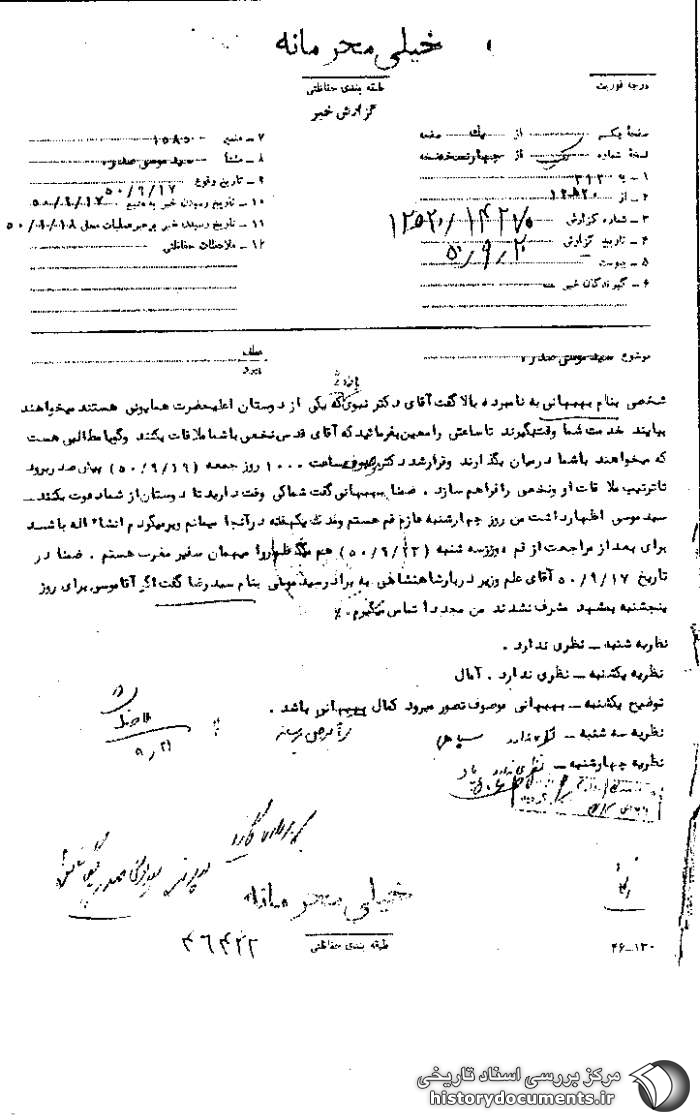 خیلی محرمانه
درجه فوریت
طبقه بندی حفاظتی
گزارش خبر
صفحهٔ یکم از یک صفحه
نسخهٔ شماره یک از چهار نسخه
۱ ـ به ۳۱۲
۲ ـ از ۱۲۵۲۰
۳ ـ شماره گزارش ۱۲۵۲۰/۱۴۲۷۵
۴ ـ تاریخ گزارش ۵۰/۹/۲۰
۵ ـ پیوست
۶ ـ گیرندگان خبر
۷ ـ منبع ۱۵۸۵۰
۸ ـ منشأ سید موسی صدر
۹ ـ تاریخ وقوع ۵۰/۹/۱۷
۱۰ ـ تاریخ رسیدن خبر به منبع ۵۰/۹/۱۷
۱۱ ـ تاریخ رسیدن خبر برهبر عملیات محل ۵۰/۹/۱۸
۱۲ ـ ملاحظات حفاظتی
موضوع سید موسی صدر
عطف
پیرو
شخصی بنام بهبهانی به نامبرده بالا گفت آقای دکتر نبوی که یکی از دوستان اعلیحضرت همایونی هستند میخواهند
بیایند خدمت شما وقت بگیرند تا ساعتش را معین بفرمائید که آقای قدس نخعی با شما ملاقات بکنند و گویا مطالبی هست
که میخواهند با شما در میان بگذارند و قرار شد دکتر ساعت ۱۰۰۰ روز جمعه (۵۰/۹/۱۹) بمنزل صدر برود
تا ترتیب ملاقات او و نخعی را فراهم سازد . ضمنا بهبهانی گفت شما کی وقت دارید تا دوستان از شما دعوت بکنند ـ
سید موسی اظهار داشت من روز چهارشنبه عازم قم هستم و مدت یکهفته در آنجا میمانم و برمیگردم انشاء اله باشد
برای بعد از مراجعت از قم و روز سه شنبه (۵۰/۹/۲۳) هم میهمان سفیر مغرب هستم . ضمنا در
تاریخ ۵۰/۹/۱۷ آقای علم وزیر دربار شاهنشاهی به برادر سید موسی بنام سید رضا گفت اگر آقا موسی برای روز
پنجشنبه بمشهد مشرف نشدند من مجددا تماس میگیرم . ٪
نظریه شنبه ـ نظری ندارد .
نظریه یکشنبه ـ نظری ندارد . آمال
توضیح یکشنبه ـ بهبهانی موصوف تصور میرود کمال بهبهانی باشد .
نظریه سه شنبه ـ نظری ندارد
نظریه چهارشنبه ـ نظری ندارد
۹/۲۱
خیلی محرمانه
طبقه بندی حفاظتی
۳۶۴۲۲
۲۶ـ۱۳۰
مرکز بررسی اسناد تاریخی
historydocuments.ir